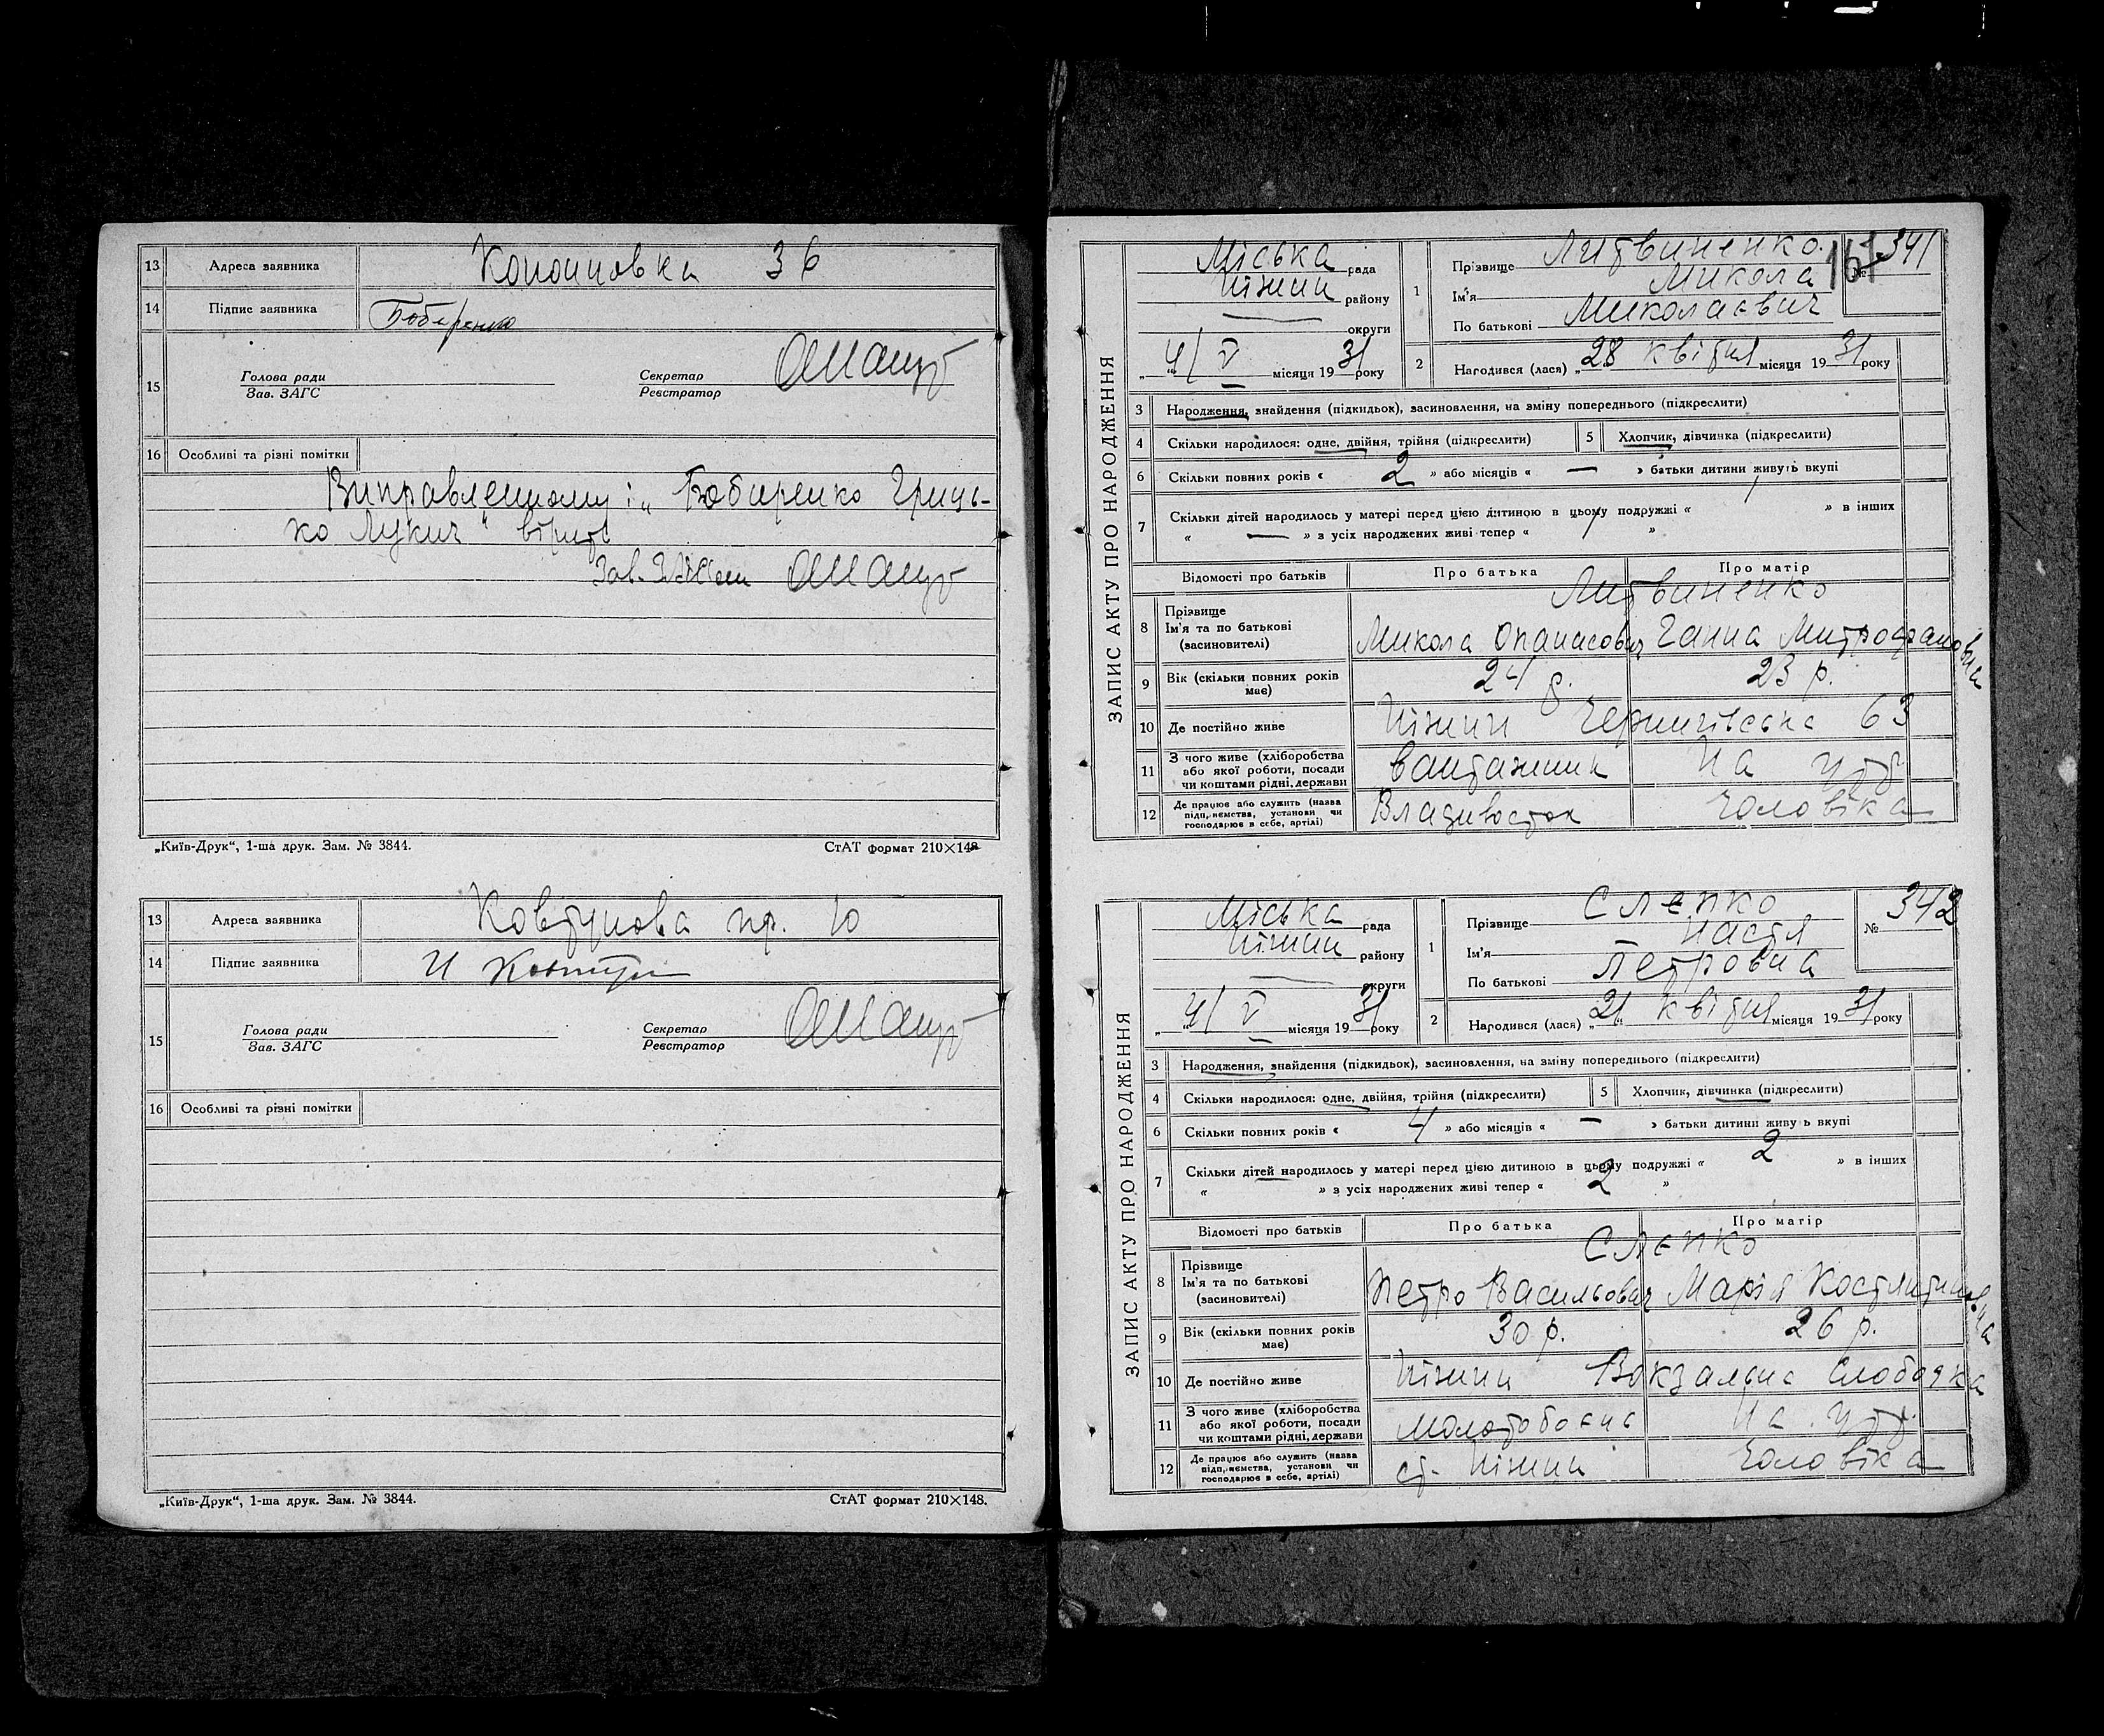 13 Адреса заявника Кономовка 36
14 Підпис заявника Бобиренко
15 Голова ради Секретар
Зав. ЗАГС Реєстратор
16 Особливі та різні помітки
Виправленному: „Бобиренко Гриць-
ко Лукич" вірить
Зав.
„Київ-Друк", 1-ша друк. Зам. № 3844. СтАТ формат 210×148
13 Адреса заявника Ковтунова пр. 10
14 Підпис заявника И Ковтун
15 Голова ради Секретар
Зав. ЗАГС Реєстратор
16 Особливі та різні помітки
„Київ-Друк", 1-ша друк. Зам. № 3844. СтАТ формат 210×148.
ЗАПИС АКТУ ПРО НАРОДЖЕННЯ
Міська рада
Ніжин району
округи
„4/" V місяця 1931 року
1 Прізвище Литвиненко
Ім'я Микола
По батькові Миколаєвич
161 № 341
2 Народився (лася) „28" квітня місяця 1931 року
3 Народження, знайдення (підкидьок), засиновлення, на зміну попереднього (підкреслити)
4 Скільки народилося: одне, двійня, трійня (підкреслити) 5 Хлопчик, дівчинка (підкреслити)
6 Скільки повних років « 2 » або місяців « — » батьки дитини живуть вкупі
7 Скільки дітей народилось у матері перед цією дитиною в цьому подружжі « 1 » в інших
« — » з усіх народжених живі тепер « 1 »
Відомості про батьків Про батька Про матір
8 Прізвище Литвиненко
Ім'я та по батькові (засиновителі) Микола Опанасович Ганна Митрофановна
9 Вік (скільки повних років має) 24 р. 23 р.
10 Де постійно живе Ніжин Чернигівська 63
11 З чого живе (хліборобства або якої роботи, посади чи коштами рідні, держави вантажник На утр
12 Де працює або служить (назва підприємства, установи чи господарює в себе, артілі) Владивосток Чоловіка
ЗАПИС АКТУ ПРО НАРОДЖЕННЯ
Міська рада
Ніжин району
округи
„4/" V місяця 1931 року
1 Прізвище Слєпко
Ім'я Настя
По батькові Петровна
№ 342
2 Народився (лася) „21" квітня місяця 1931 року
3 Народження, знайдення (підкидьок), засиновлення, на зміну попереднього (підкреслити)
4 Скільки народилося: одне, двійня, трійня (підкреслити) 5 Хлопчик, дівчинка (підкреслити)
6 Скільки повних років « 4 » або місяців « — » батьки дитини живу ь вкупі
7 Скільки дітей народилось у матері перед цією дитиною в цьому подружжі « 2 » в інших
« » з усіх народжених живі тепер « 2 »
Відомості про батьків Про батька Про матір
8 Прізвище Слєпко
Ім'я та по батькові (засиновителі) Петро Васильович Марія Костянтиновна
9 Вік (скільки повних років має) 30 р. 26 р.
10 Де постійно живе Ніжин Вокзальна слободка
11 З чого живе (хліборобства або якої роботи, посади чи коштами рідні, держави молотобоєць На утр.
12 Де працює або служить (назва підприємства, установи чи господарює в себе, артілі) ст. Ніжин Чоловіка